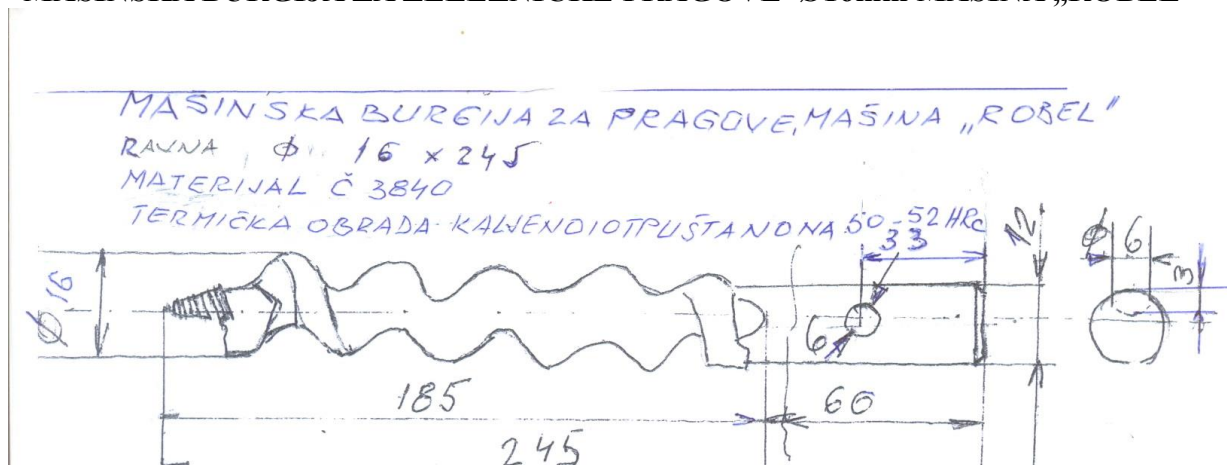 MAŠINSKA BURGIJA ZA PRAGOVE, MAŠINA „ROBEL"
RAVNA ϕ 16 x 245
MATERIJAL Č 3840
TERMIČKA OBRADA KALJENO I OTPUŠTANO NA 50-52 HRc
33
12
ϕ 6
3
ϕ 16
6
185
60
245